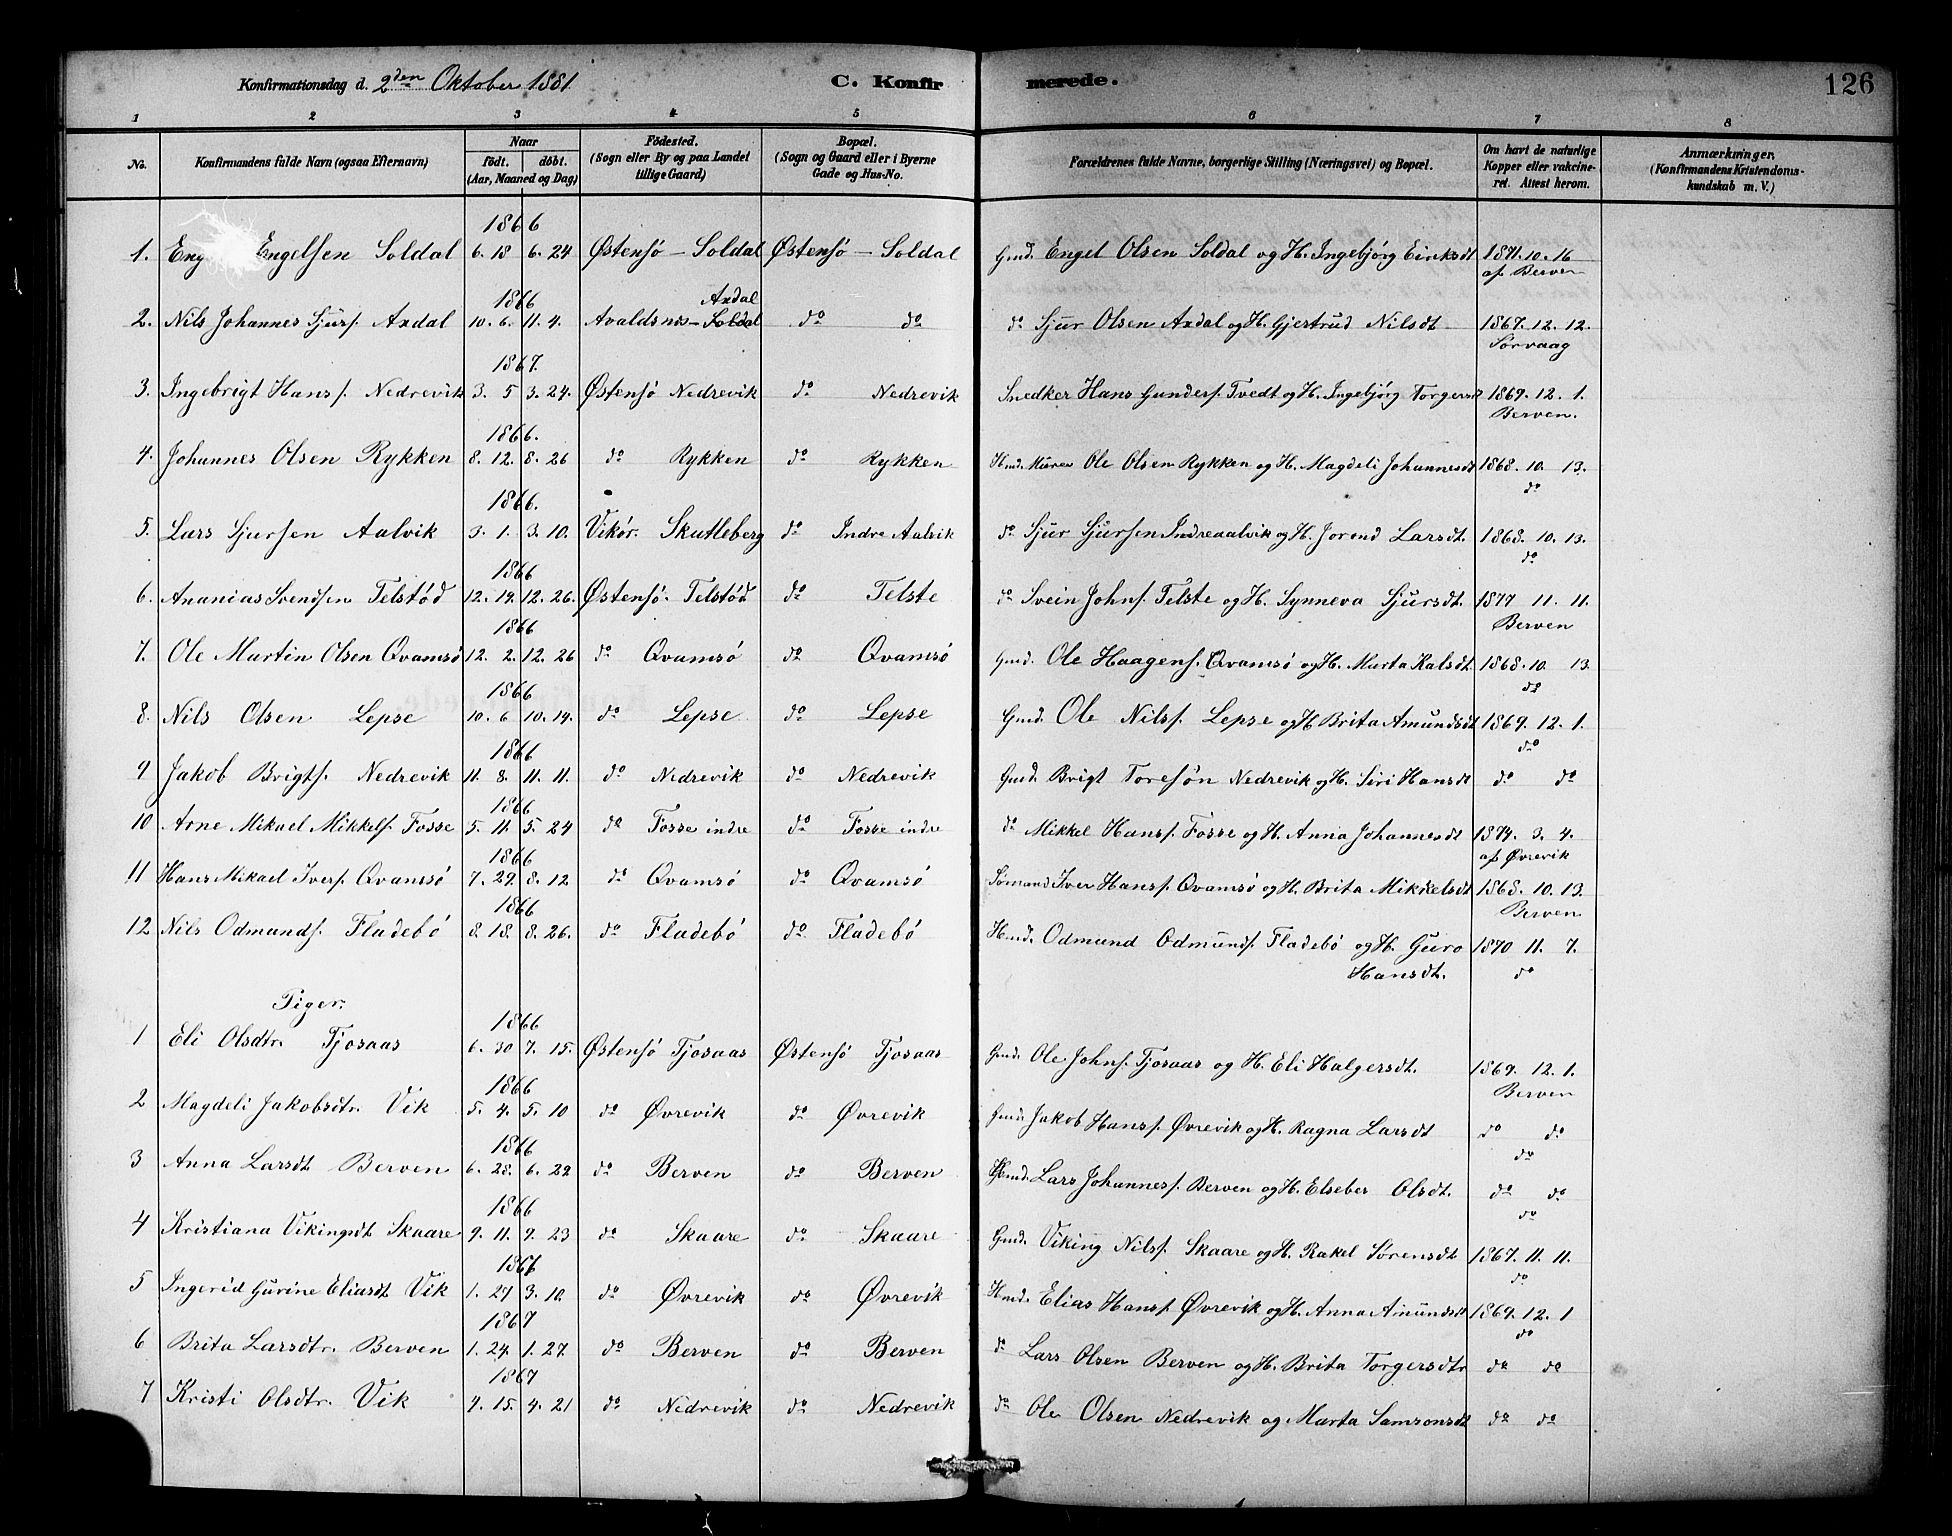 Konfirmationsdag d. 2den Oktober 1881. C. Konfirmerede. 126
1 2 3 4 5 6 7 8
No. Konfirmandens fulde Navn (ogsaa Efternavn) Naar født. døbt. (Aar, Maaned og Dag) Fødested. (Sogn eller By og paa Landet tillige Gaard) Bopæl. (Sogn og Gaard eller i Byerne Gade og Hus-No. Forældrenes fulde Navne, borgerlige Stilling (Næringsvei) og Bopæl. Om havt de naturlige Kopper eller vakcineret. Attest herom. Anmærkninger. (Konfirmandens Kristendomskundskab m. V.)
1866
1. Eng Engelsen Soldal 6. 18 6. 24 Østensö – Soldal Østensö – Soldal Gmd. Engel Olsen Soldal og H. Ingebjørg Eiriksdt 1871. 10. 16
af Berven
1866 Axdal
2. Nils Johannes Sjurs. Axdal 10. 6. 11. 4. Avaldsnes – Soldal do do do Sjur Olsen Axdal og H. Gjertrud Nilsdt 1867. 12. 12.
Sørvaag
1867.
3. Ingebrigt Hanss. Nedrevik 3. 5 3. 24. Østensö Nedrevik do Nedrevik Snedker Hans Gunders. Tvedt og H. Ingebjörg Torgersd 1869. 12. 1.
Berven.
1866.
4. Johannes Olsen Rykken 8. 12. 8. 26 do Rykken do Rykken Hmd. Murer Ole Olsen Rykken og H. Magdeli Johannesdt 1868. 10. 13.
do
1866.
5. Lars Sjursen Aalvik 3. 1. 3. 10. Vikör. Skutleberg do Indre Aalvik do Sjur Sjursen Indreaalvik og H. Jorend Larsdt. 1868. 10. 13.
do
1866
6. Ananias Svendsen Telstöd 12. 19. 12. 26. Østensö. Telstöd do Telste do Svein Johns. Telste og H. Synneva Sjursdt. 1877 11. 11.
Berven
1866
7. Ole Martin Olsen Qvamsö 12. 2. 12. 26 do Qvamsö do Qvamsö Gmd. Ole Haagens. Qvamsö og H. Marta Kalsdt. 1868. 10. 13
do
1866
8. Nils Olsen Lepse 10. 6 10. 14. do Lepse. do Lepse Gmd. Ole Nilss. Lepse og H Brita Amundsdt 1869. 12. 1.
do
1866
9 Jakob Brigts. Nedrevik 11. 8. 11. 11. do Nedrevik do Nedrevik Gmd. Brigt Toresön Nedrevik og H. Siri Hansdt do do
1866
10 Arne Mikael Mikkels. Fosse 5. 11. 5. 24 do Fosse indre do Fosse indre do Mikkel Hanss. Fosse og H. Anna Johannesdt 1874. 3. 4.
af Øvrevik
1866
11 Hans Mikael Ivers. Qvamsö 7. 29. 8. 12 do Qvamsö do Qvamsö Sömand Iver Hanss. Qvamsö og H. Brita Mikkelsdt 1868. 10. 13.
Berven
1866
12 Nils Odmunds. Fladebö 8. 18. 8. 26. do Fladebö do Fladebö Hmd. Odmund Odmunds. Fladebö og H. Guro 1870 11. 7.
Hansdt. do
Piger.
1866
1 Eli Olsdtr. Tjosaas 6. 30 7. 15. Østensö Tjosaas Østensö Tjosaas Gmd. Ole Johns. Tjosaas og H. Eli Halgersdt. 1869. 12. 1.
Berven
1866
2 Magdeli Jakobsdtr. Vik 5. 4. 5. 10 do Øvrevik do Øvrevik Gmd. Jakob Hanss. Øvrevik og H. Ragna Larsdt do do
do
1866
3 Anna Larsdt Berven 6. 28. 6. 29 do Berven do Berven Gmd. Lars Johanness. Berven og H. Elseber Olsdt. do do
do
1866
4 Kristiana Vikingsdt Skaare 9. 11. 9. 23 do Skaare do Skaare Gmd. Viking Nilss. Skaare og H. Rakel Sørensdt 1867. 11. 11.
do
1866
5 Ingerid Gurine Eliasdt Vik 1. 27 3. 10. do Øvrevik do Øvrevik Hmd. Elias Hanss. Øvrevik og H. Anna Amundsdt 1869. 12. 1
do
1867
6 Brita Larsdtr. Berven 1. 24. 1. 27. do Berven do Berven do Lars Olsen Berven og H. Brita Torgersdtr do do
1867
7 Kristi Olsdtr. Vik 4. 15. 4. 21 do Nedrevik do Nedrevik do Ole Olsen Nedrevik og Marta Samsonsdt do do